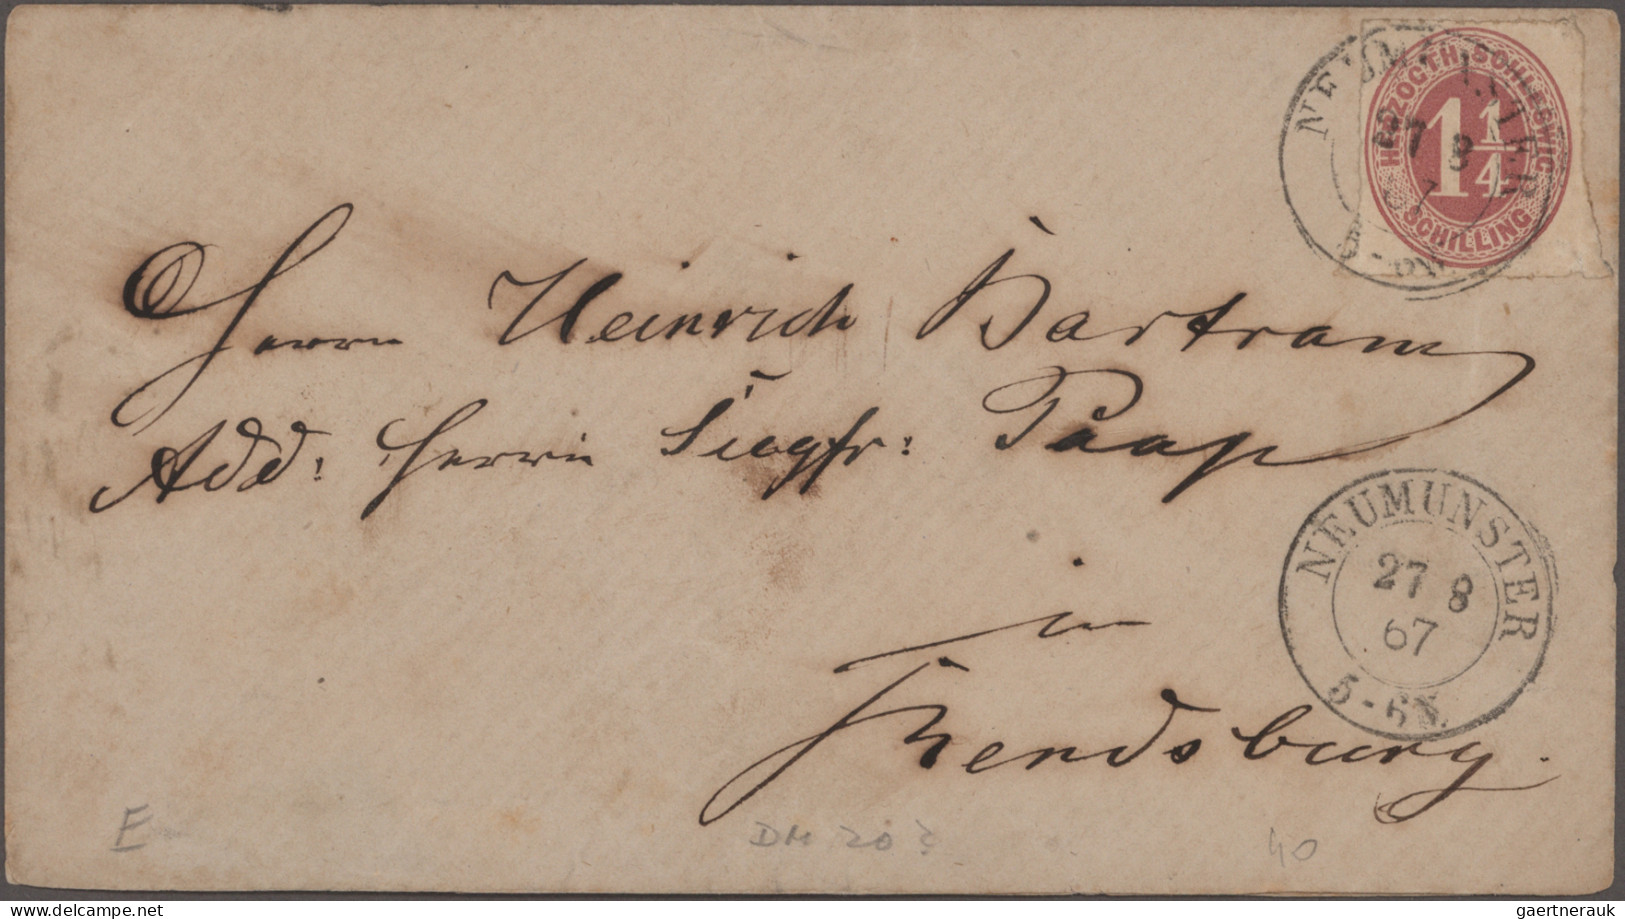 NEUMÜNSTER
27 8
67
5-6N.
HERZOGTH. SCHLESWIG
1 1/4
SCHILLING
Herrn Heinrich Bartram
Add: Herrn Siegfr: Paap
in
Rendsburg.
NEUMUNSTER
27 8
67
5-6N.
E
DM 20?
40
www.delcampe.net
gaertnerauk